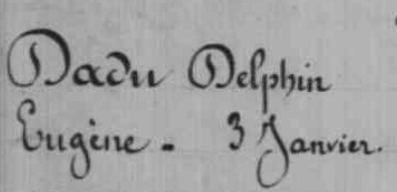 Dadu Delphin
Eugène - 3 Janvier.